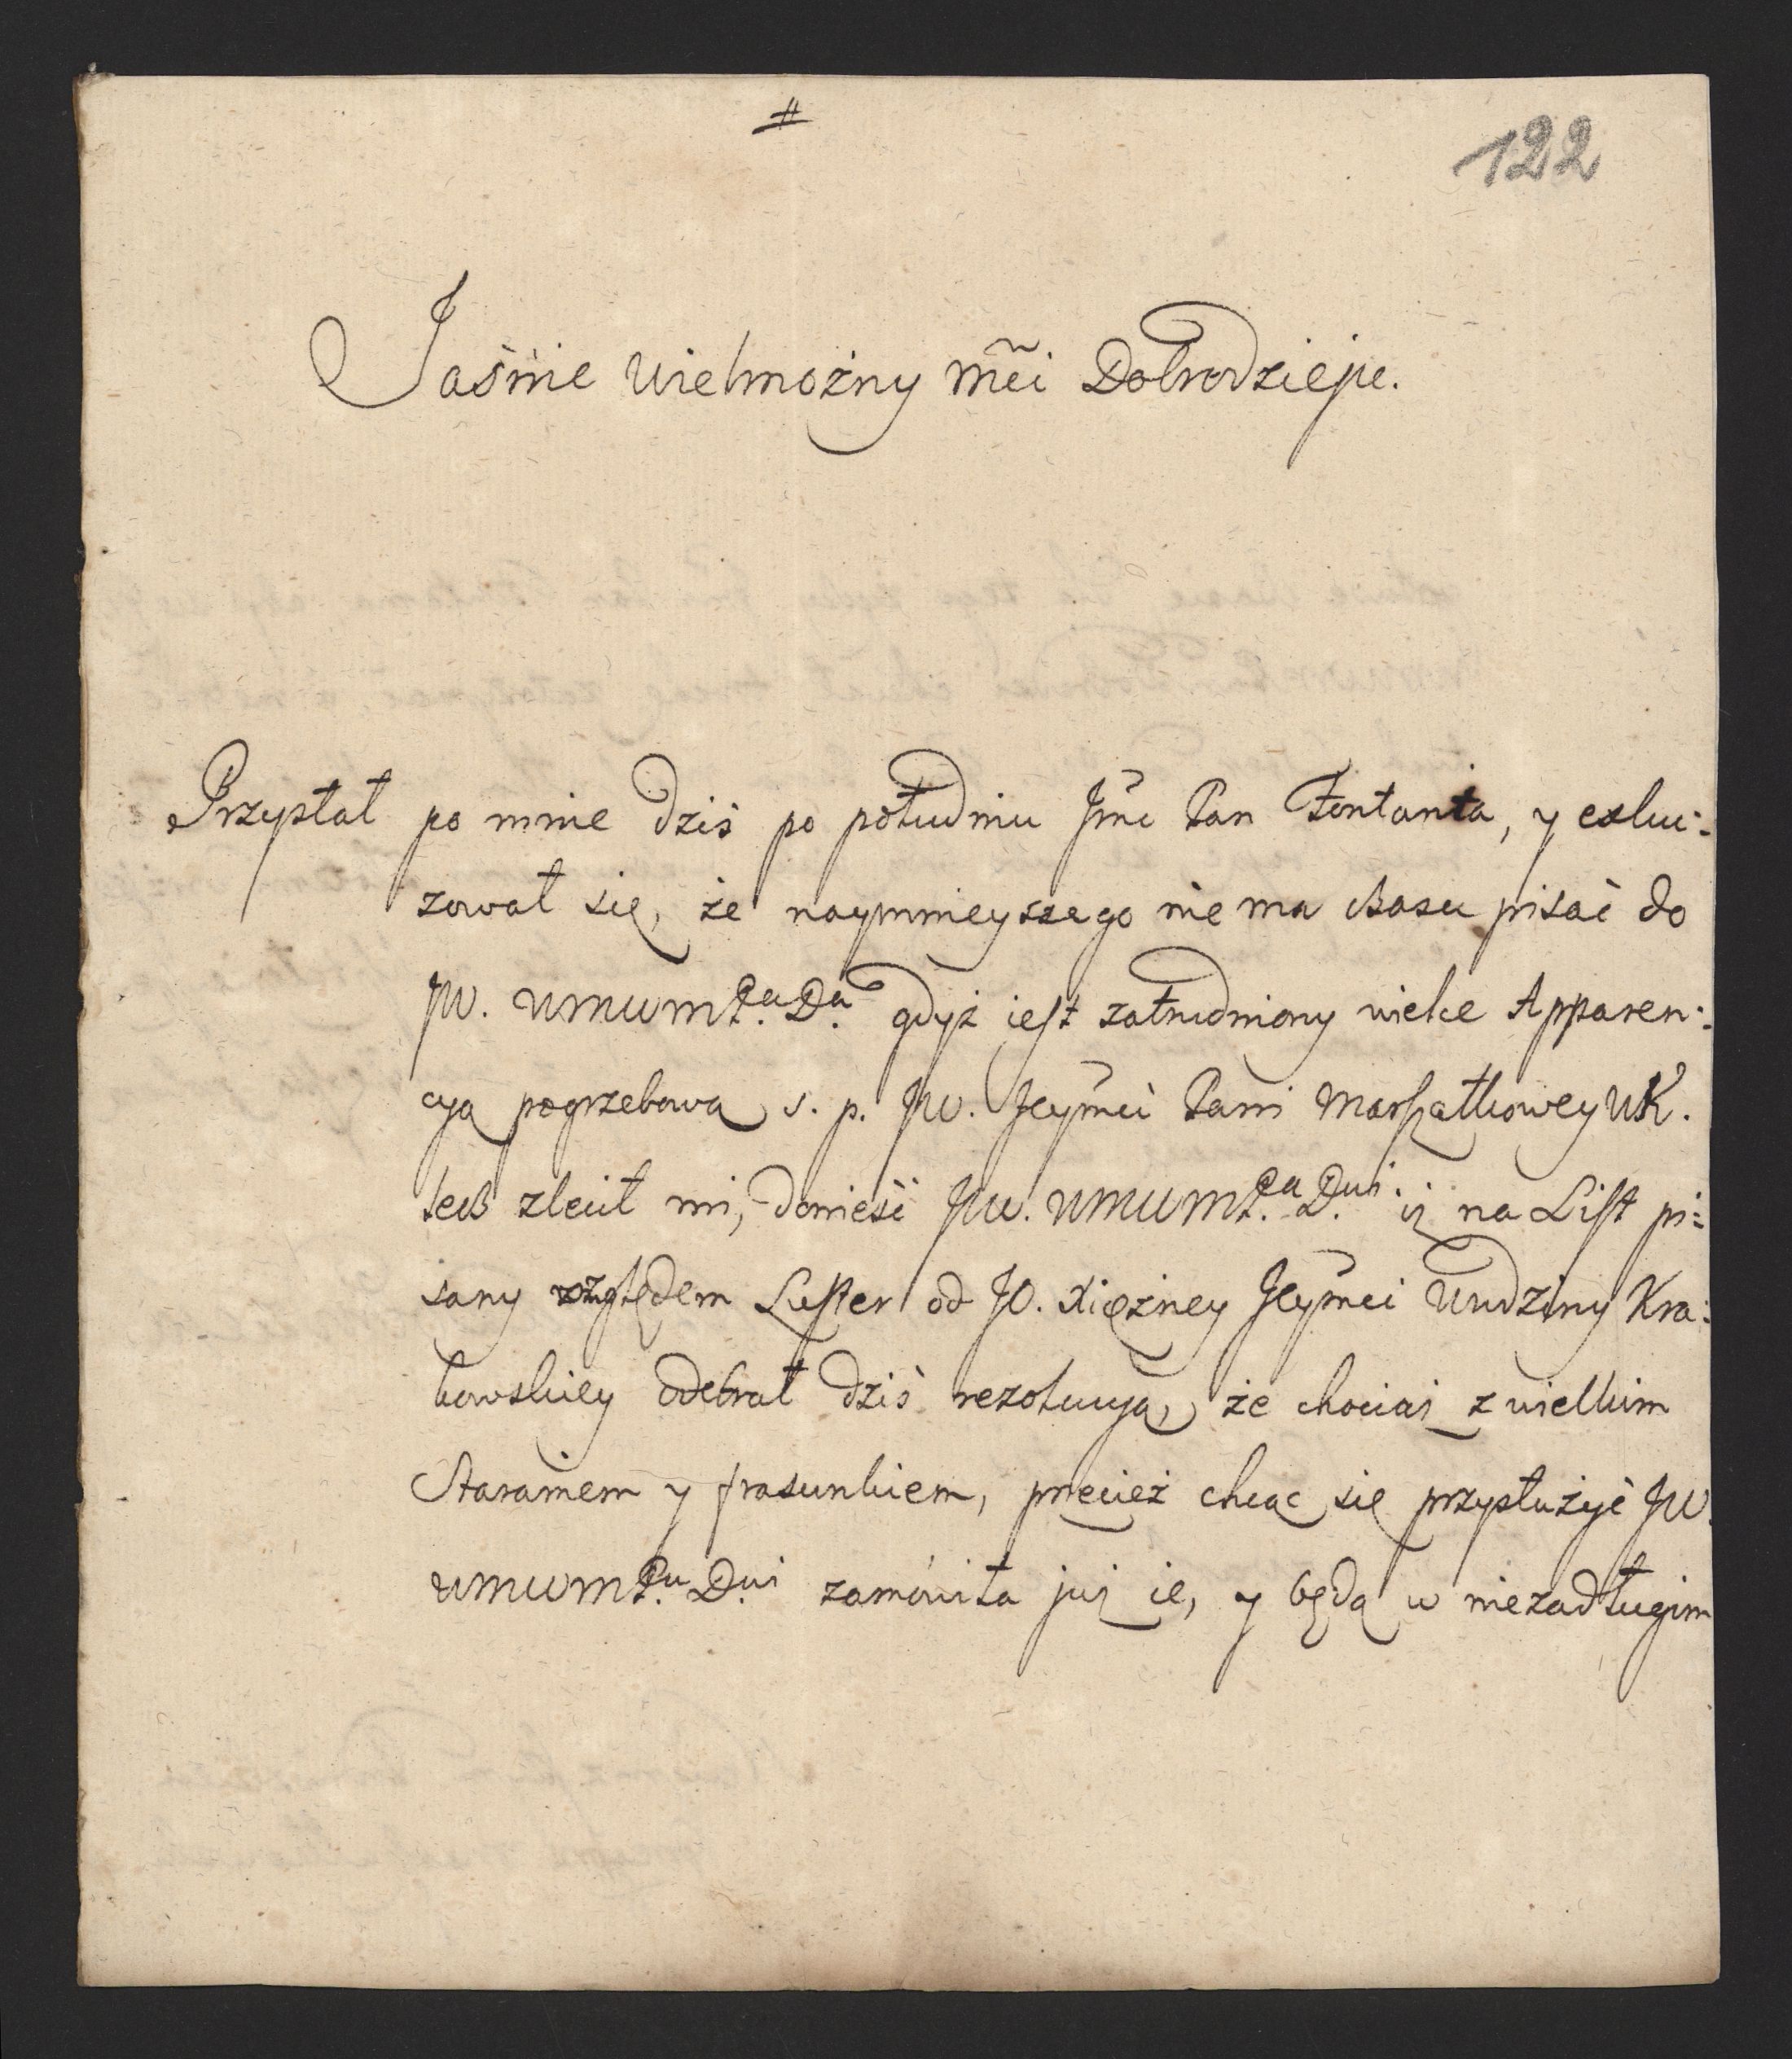 #
122
Jaśnie Wielmożny Mći Dobrodzieju.
Przysłał po mnie dziś po południu Jmć Pan Fontanta, y exkui-
zował się, że naymnieyszego nie ma czasu pisać do
JW. WMWMP.a D.a gdyż iest zatrudniony wielce Apparen-
cyą pogrzebową s. p. JW. Jeymći Pani Marszałkowey WK.
lecz zlecił mi, donieść JW. WMWMP.a D.wi iż na List pi-
sany względem Luster od JO. Xiężney Jeymći Wudziny Kra-
kowskiey odebrał dziś rezolucyą, że chociaż z wielkim
Staraniem y frasunkiem, przecież chcąc się przysłużyć JW.
WMWMP.u D.wi zamówiła już ie, y będą w niezadługim